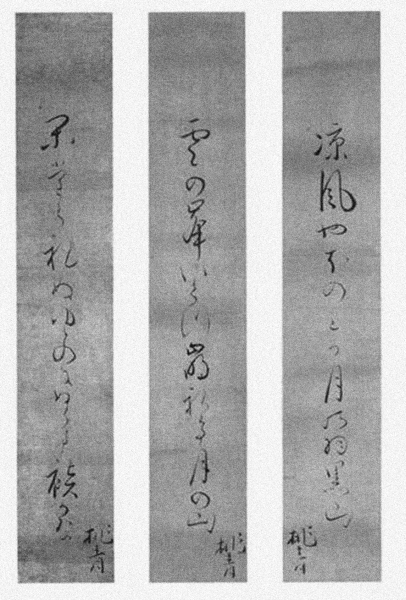 凉風やほの三か月の羽黒山
桃青
雲の峯いくつ崩れて月の山
桃青
かたられぬゆとのにぬらす袂かな
桃青